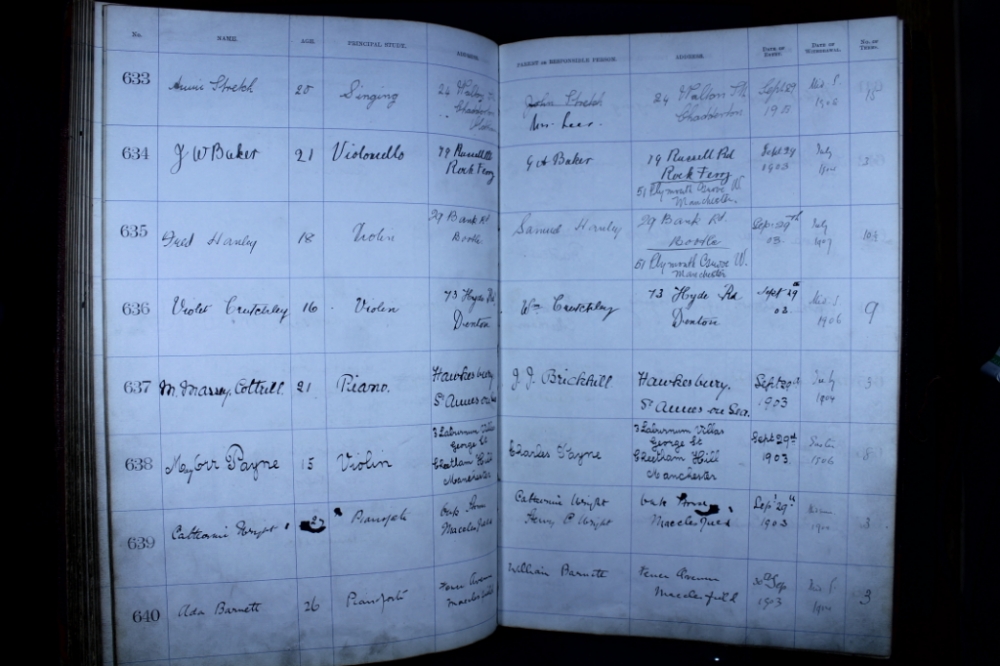 No. NAME. AGE. PRINCIPAL STUDY. ADDRESS. PARENT OR RESPONSIBLE PERSON. ADDRESS. DATE OF ENTRY. DATE OF WITHDRAWAL. No. OF TERMS.
633 Annie Stretch 20 Singing 24 Walton St. John Stretch 24 Walton St. Sept 29
Chadderton Mrs. Lees. Chadderton 1906
634 J W Baker 21 Violoncello 79 Russell Rd G A Baker 79 Russell Rd Sept 29 July 3
Rock Ferry Rock Ferry 1903
51 Plymouth Grove W.
Manchester.
635 Fred Hanley 18 Violin 29 Bank Rd Samuel Hanley 29 Bank Rd. Sept 29th July
Bootle Bootle 03. 1907
51 Plymouth Grove W.
Manchester
636 Violet Crutchley 16 Violin 73 Hyde Rd Wm Crutchley 73 Hyde Rd Sept 29th 9
Denton Denton 03 1906
637 M. Massey Cottrell. 21 Piano. Hawkesbury J. J. Brickhill Hawkesbury. Sept 29th July 3
St Annes on Sea St Annes on Sea. 1903 1904
638 Payne 15 Violin 3 Laburnum Villas Charles Payne 3 Laburnum Villas Sept 29th Easter 8
George St George St 1903. 1906
Cheetham Hill Cheetham Hill
Manchester Manchester
639 Catherine Wright Pianoforte Oak Catherine Wright Oak Sept 29th 3
Macclesfield Henry P Wright Macclesfield 1903
640 Ada Barnett 26 Pianoforte Fence Avenue William Barnett Fence Avenue 30th Sep 3
Macclesfield Macclesfield 1903